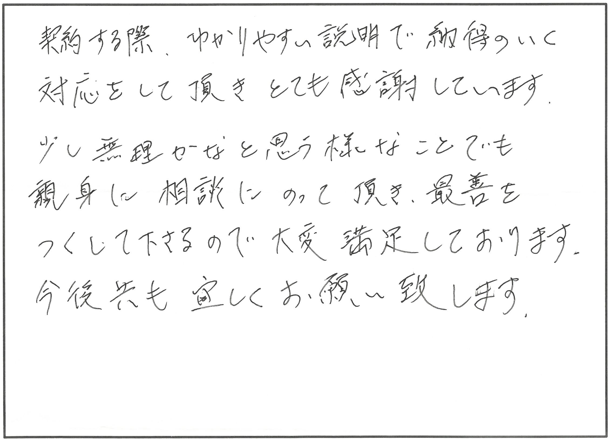 契約する際、わかりやすい説明で納得のいく
対応をして頂きとても感謝しています。
少し無理かなと思う様なことでも
親身に相談にのって頂き、最善を
つくして下さるので大変満足しております。
今後共も宜しくお願い致します。